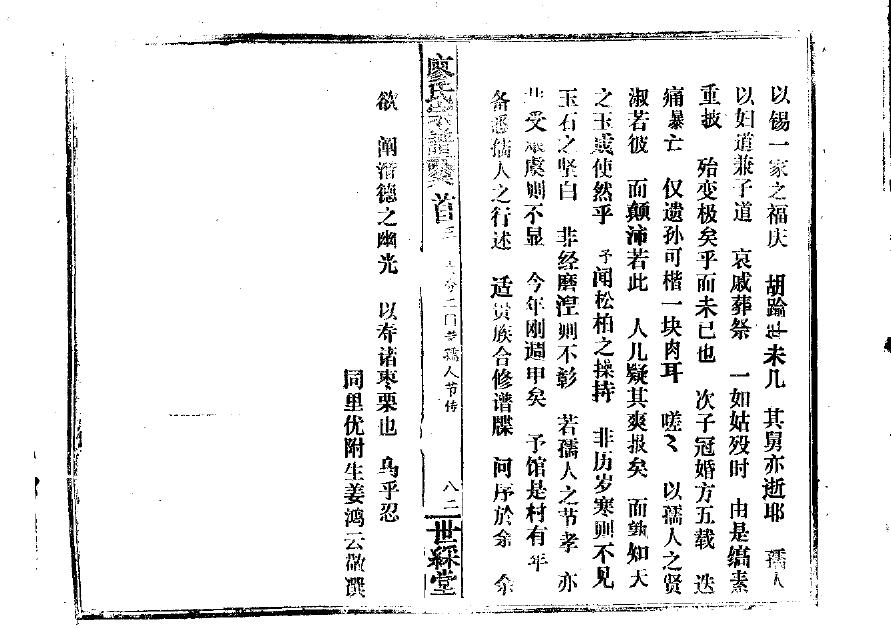 以锡一家之福庆　胡踰世未几　其舅亦逝耶　孺人
以妇道兼子道　哀戚葬祭　一如姑殁时　由是缟素
重披　殆变极矣乎而未已也　次子冠婚方五载　迭
痛暴亡　仅遗孙可楷一块肉耳　嗟〻　以孺人之贤
淑若彼　而颠沛若此　人几疑其爽报矣　而孰知天
之玉成使然乎　予闻松柏之操持　非历岁寒则不见
玉石之坚白　非经磨涅则不彰　若孺人之节孝　亦
受虞则不显　今年刚週甲矣　予馆是村有年
备悉孺人之行述　适贵族合修谱牒　问序於余　余
廖氏 首 孺人节传 八二 世綵堂
欲　阐潜德之幽光　以寿诸枣栗也　乌乎忍
同里优附生姜鸿云敬撰